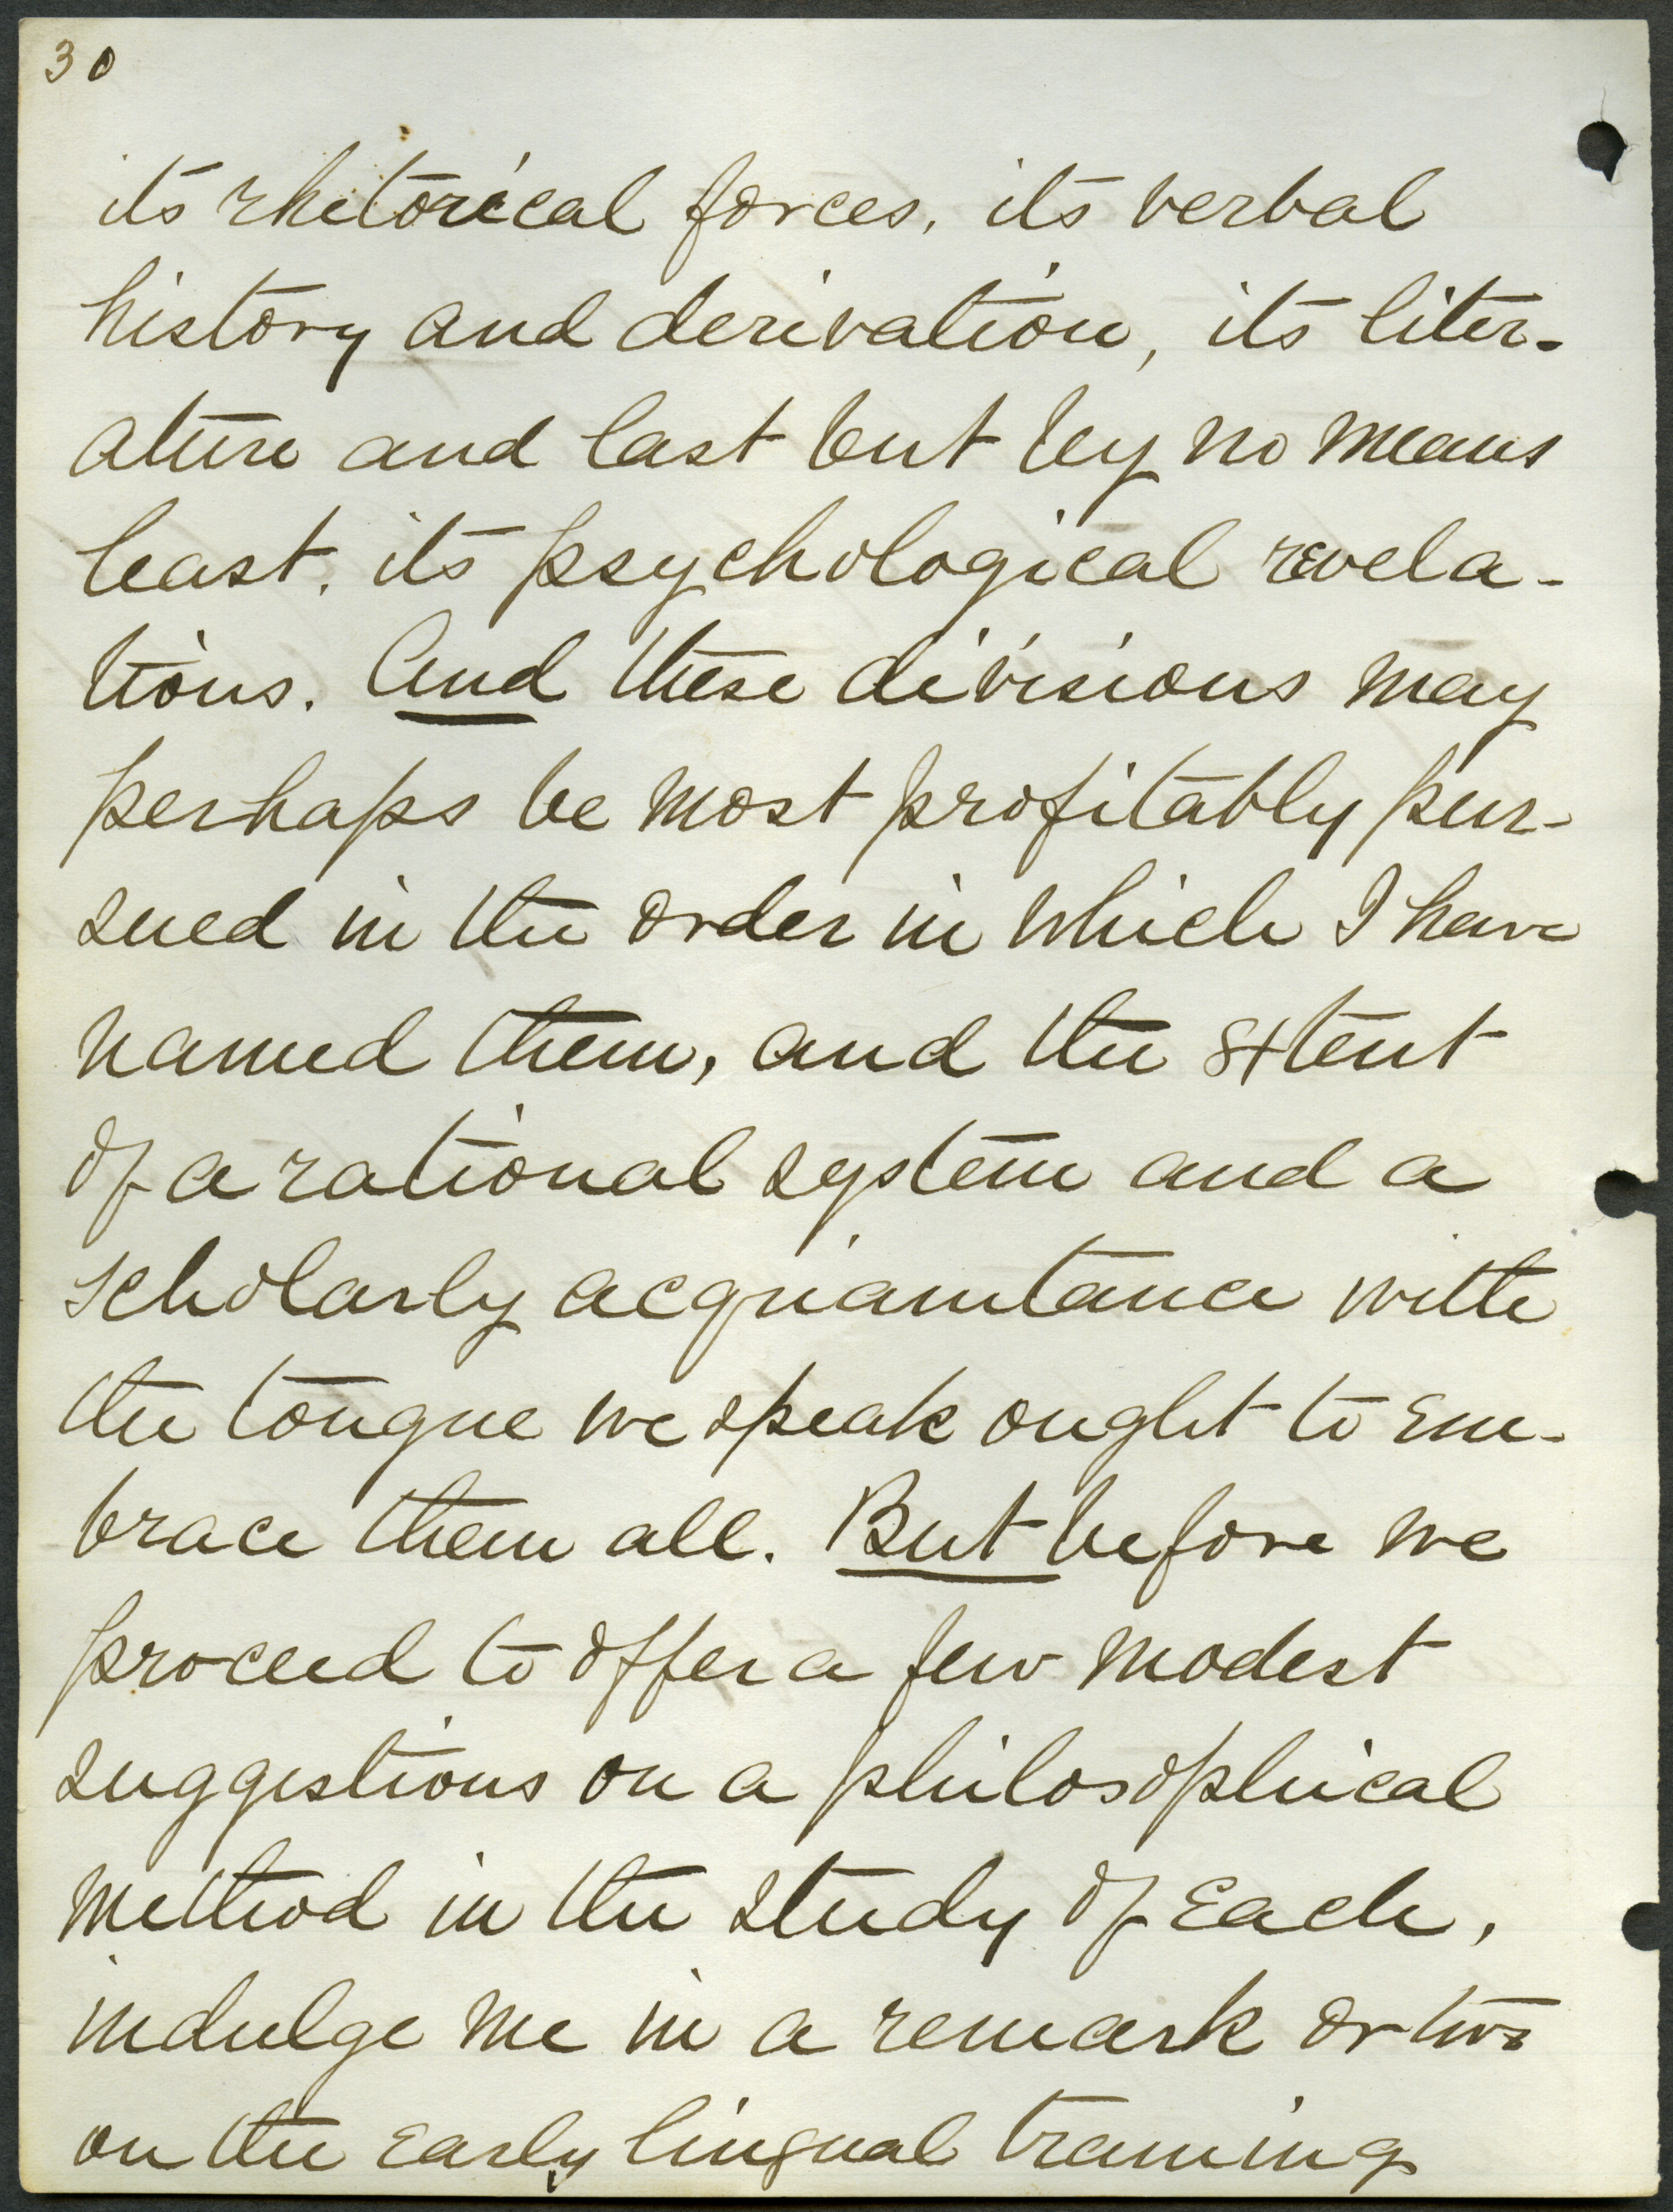 30
its rhetorical forces, its verbal
history and derivation, its liter-
ature and last but by no means
least, its psychological revela-
tions. And these divisions may
perhaps be most profitably pur-
sued in the order in which I have
named them, and the extent
of a rational system and a
scholarly acquaintance with
the tongue we speak ought to em-
brace them all. But before we
proceed to offer a few modest
suggestions on a philosophical
method in the study of each,
indulge me in a remark or two
on the early lingual training